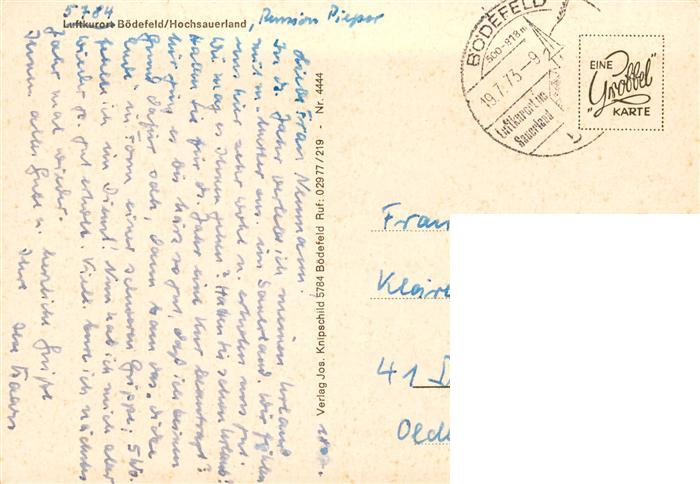 5784
Luftkurort Bödefeld/Hochsauerland, Pension Pieper
Liebe Frau Neumann!
In ds. Jahr verlebe ich meinen Urlaub
mit m. Mutter aus. im Sauerland. Wir fühlen
uns hier sehr wohl u. erholen uns gut.
Wie mag es Ihnen gehen? Hatten Sie schon Urlaub?
Hatten Sie für ds. Jahr eine Kur beantragt?
Mir ging es bis März so gut, daß ich keinen
Grund dafür sah, dann kam das dicke
Ende in Form einer schweren Grippe; 5 Wo.
fehlte ich im Dienst! Nun hab ich mich aber
wieder ganz gut erholt. Viell. kann ich nächstes
Jahr mal wieder.
Ihnen alles Gute u. herzliche Grüße
Ihre
Verlag Jos. Knipschild 5784 Bödefeld Ruf: 02977/219 - Nr. 4444
BÖDEFELD
500-818 m
19.7.73-9
Luftkurort im
Sauerland
EINE
"Gröbbel"
KARTE
Frau
Klaire
41 D
Olde